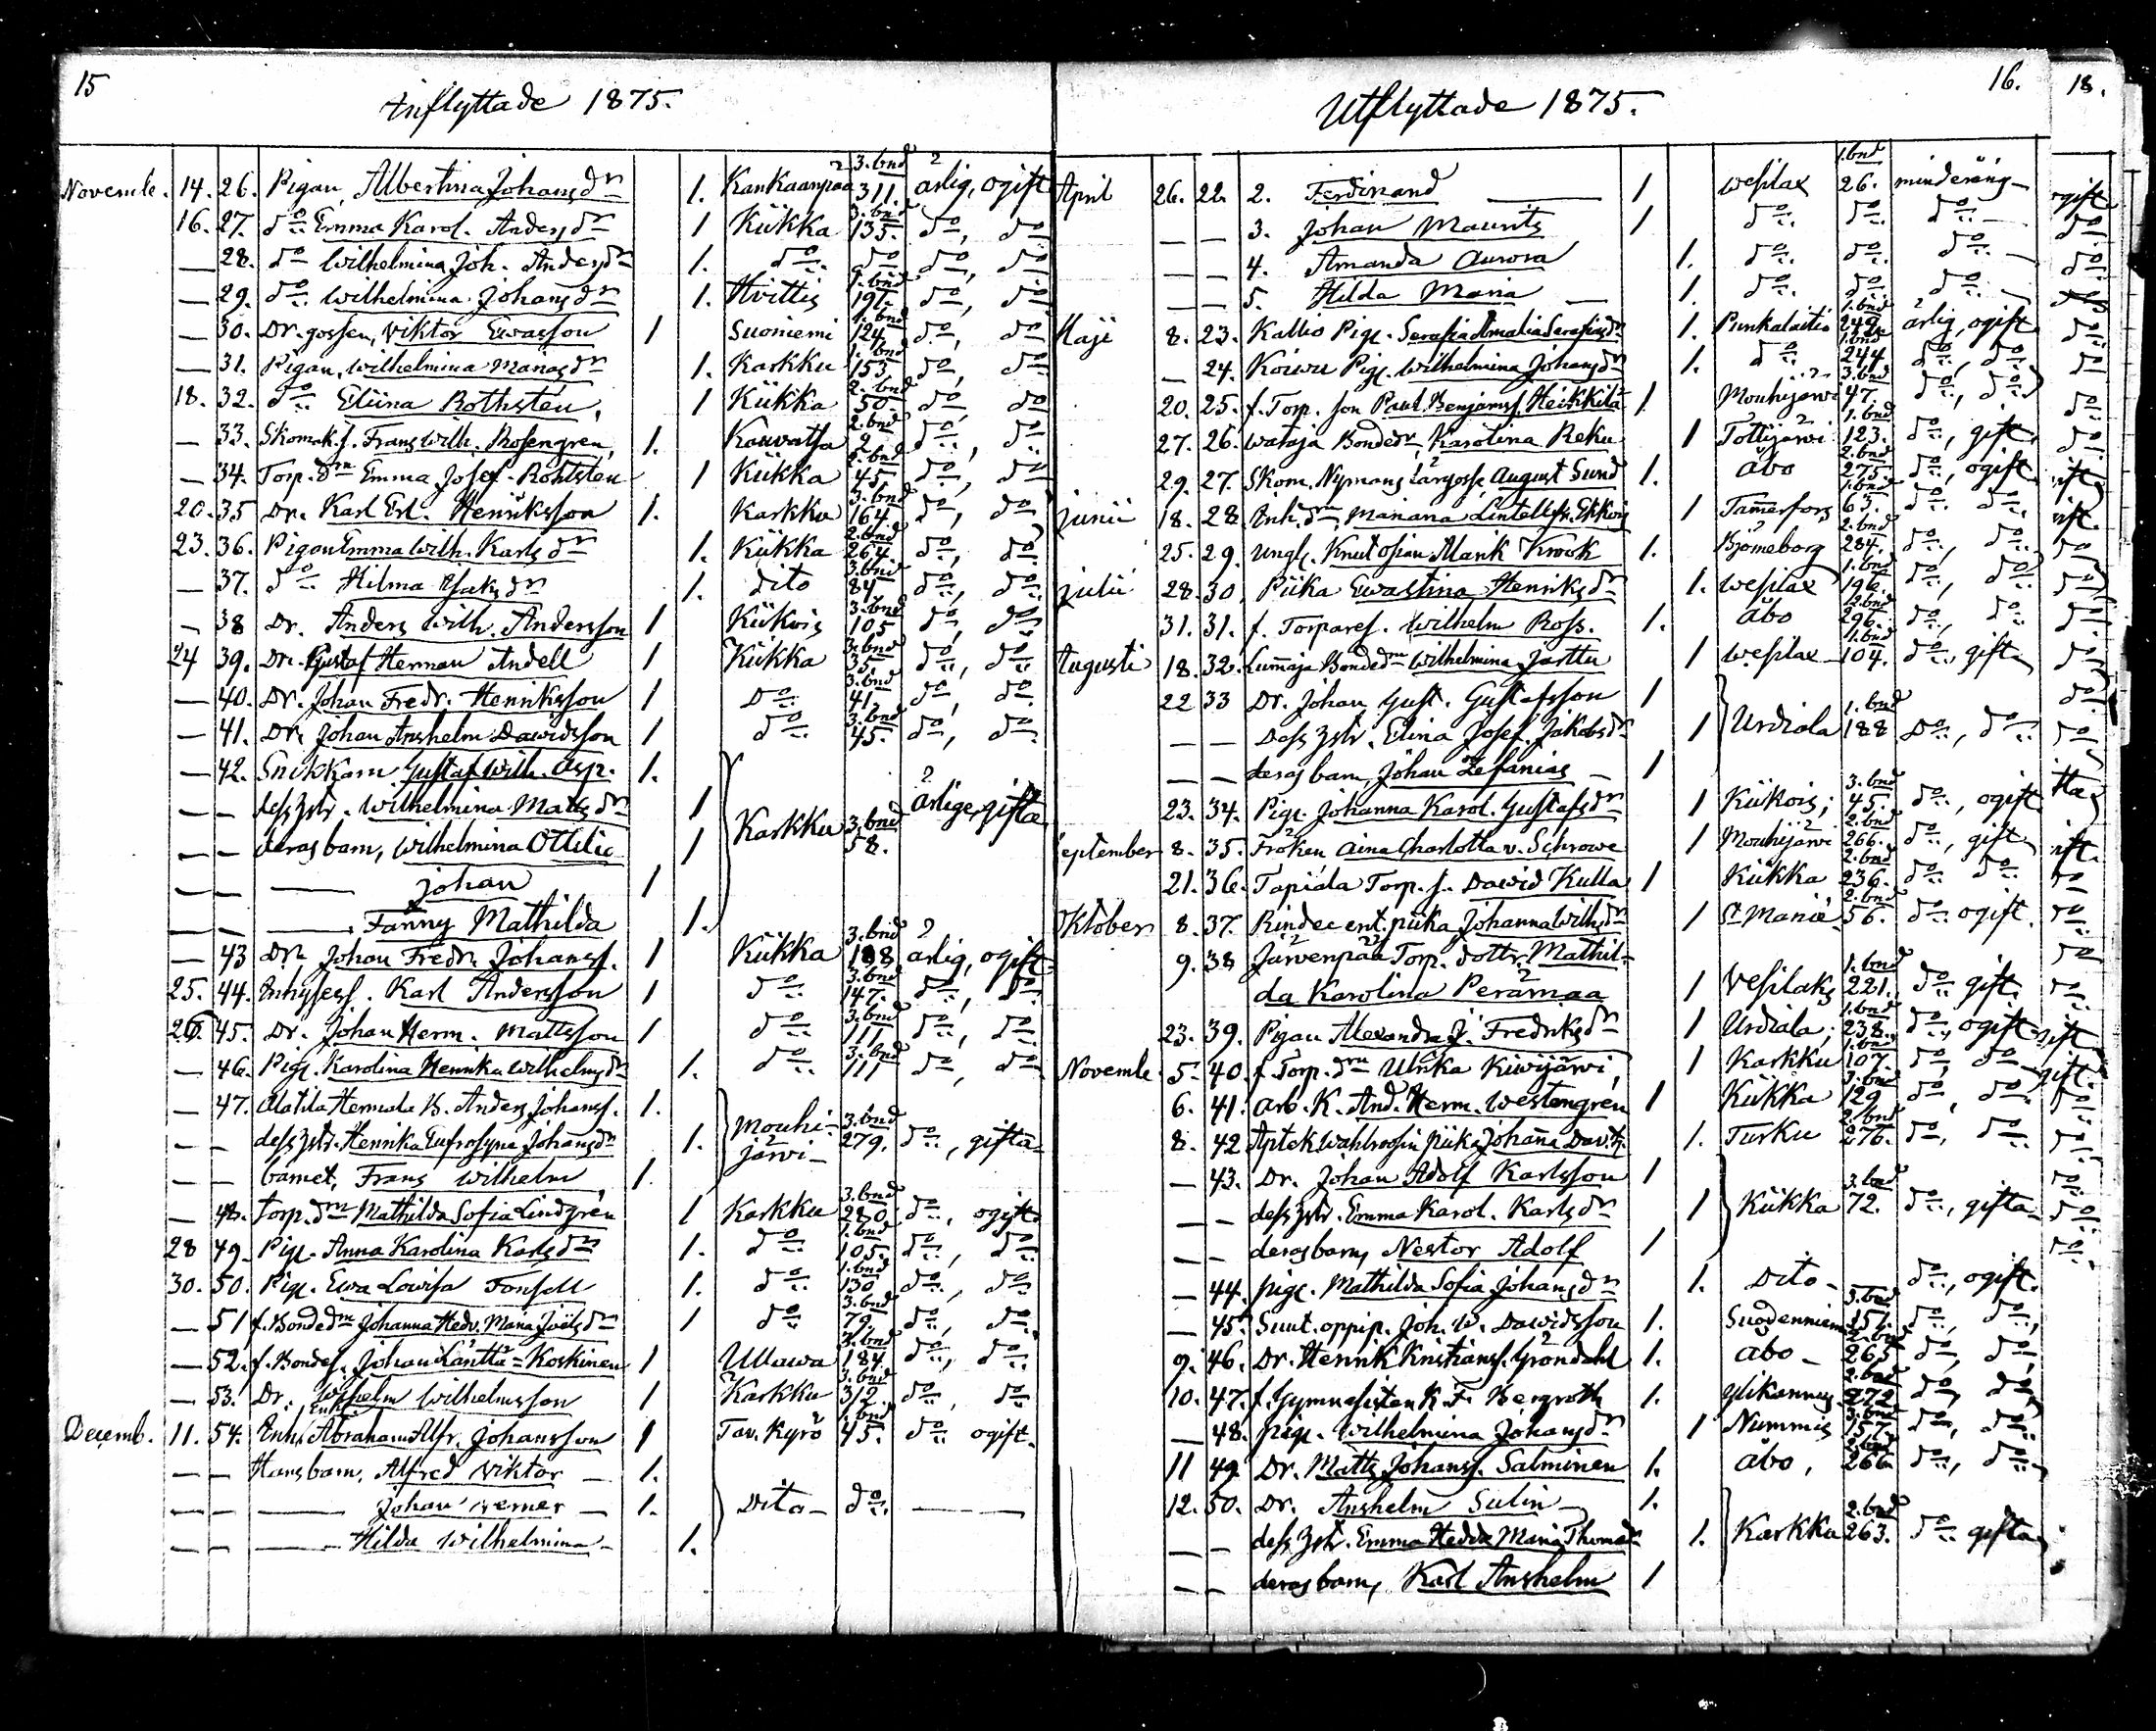 15
Inflyttade 1875.
Novemb. 14. 26. Pigan, Albertina Johansdr 1. Kankaanpää 3. bnd 311. ärlig, ogift
16. 27. do Emma Karol. Andersdr 1 Kiikka 3. bnd 135. do, do
— 28. do Wilhelmina Joh. Andersdr 1. do do do, do
— 29. do Wilhelmina Johansdr 1. Hvittis 191. do, do
— 30. Dr. gossen, Viktor Ewasson 1 Suoniemi 1. bnd 124, do, do
— 31. Pigan, Wilhelmina Mariasdr 1. Karkku 1. bnd 153, do, do
18. 32. do Eliina Rothstén, 1 Kiikka 2. bnd 50. do, do
— 33. Skomak. s. Frans Wilh. Rosengren, 1. Kauvatsa 2. bnd 2. do, do
— 34. Torp. dm Emma Josef. Rohtsten 1 Kiikka 45, do, do
20. 35 Dr. Karl Erl. Henriksson 1. Karkku 3. bnd 164 do, do
23. 36. Pigan Emma Wilh. Karlsdr 1. Kiikka 2. bnd 264 do, do
— 37. do Hilma Isaksdr 1. dito 3. bnd 84 do, do
— 38 Dr. Anders Wilh. Andersson 1 Kiikois 3. bnd 105 do, do
24 39. Dr. Gustaf Herman Andell 1 Kiikka 3. bnd 35. do, do
— 40. Dr. Johan Fredr. Henriksson 1 Do 3. bnd 41, do, do
— 41. Dr. Johan Anshelm Dawidsson 1 do 3. bnd 45. do, do
— 42. Snikkarn Gustaf Wilh. Asp. 1.
— — dess hstr. Wilhelmina Matsdr 1 Karkku 3. bnd 58. ärlige, gifta
— — deras barn, Wilhelmina Ottilia 1
— — — Johan 1
— — — Fanny Mathilda 1.
— 43 Dr. Johan Fredr. Johanss. 1 Kiikka 3. bnd 198 ärlig, ogift
25. 44. Inhysess. Karl Andersson 1 do 3. bnd 147. do, do
26. 45. Dr. Johan Herm. Mattsson 1 do 3. bnd 111 do, do
— 46. Pig. Karolina Henrika Wilhelmsdr 1. do 3. bnd 111 do, do
— 47. Alatila Hermala B. Anders Johanss. 1.
— — dess hstr. Henrika Eufrosyna Johansdr 1. Mouhijärvi 3. bnd 279. do, gifta
— — barnet, Frans Wilhelm 1.
— 48. Torp. dm Mathilda Sofia Lindgrén 1 Karkku 3. bnd 280 do, ogift
28 49. Pig. Anna Karolina Karlsdr 1. do 1. bnd 105. do, do
30. 50. Pig. Ewa Lowisa Fonsell 1. do 1. bnd 130 do, do
— 51 f. Bondedm Johanna Hedv. Maria Joelsdr 1 do 3. bnd 79. do, do
— 52. f. Bondes. Johan Känttä-Koskinen 1 Ullawa 184. do, do
— 53. Dr. Wilhelm Wilhelmsson 1 Karkku 3. bnd 312. do, do
Decemb. 11. 54. Enkl. Abraham Alfr. Johansson 1 Tav. Kyrö 1. bnd 45. do ogift.
— — Hans barn, Alfred Viktor — 1.
— — — Johan Verner — 1. Dito — do. —
— — — Hilda Wilhelmina — 1.
16.
Utflyttade 1875.
April 26. 22. 2. Ferdinand — 1 Wesilax 1. bnd 26. minderårig —
— — 3. Johan Maurits 1 do. do. do —
— — 4. Amanda Aurora 1. do. do. do —
— — 5. Hilda Maria — 1. do. do do —
Maji 8. 23. Kallio Pig. Serafia Amalia Serafiasdr 1. Punkalaitio 1. bnd 249. ärlig, ogift
— 24. Koiwu Pig. Wilhelmina Johansdr 1. do 1. bnd 244. do, do
20. 25. f. Torp. son Paul Benjamss. Heikkilä 1. Mouhijärwi 3. bnd 47. do, do
27. 26. Wataja Bondedr, Karolina Reku 1 Tottijärwi 1. bnd 123. do, gift
29. 27. Skom. Nymans lärgosse, August Sund 1. Åbo 2. bnd 275. do, ogift
Junii 18. 28 Inh. dm Mariana Lintell 1 Tamerfors 1. bnd 63. do. do.
25. 29. Ungl. Knut Osian Marik Krook 1. Björneborg 2. bnd 284. do, do
Julii 28. 30. Piika Ewastina Henriksdr 1. Wesilax 1. bnd 196. do, do
31. 31. f. Torpares. Wilhelm Ross. 1. Åbo 2. bnd 296. do, do
Augusti 18. 32. Lumaja Bondedm Wilhelmina Jattu 1 Wesilax 1. bnd 104. do., gift
22 33 Dr. Johan Gust. Gustafsson 1
— — Dess hstr. Elina Josef. Jakobsdr 1 Urdiala 1. bnd 188 Do, do
— — deras barn, Johan Zefanias — 1
23. 34. Pig. Johanna Karol. Gustafsdr 1 Kiikois; 3. bnd 45. do, ogift
September 8. 35. Fröken Aina Charlotta v. Schrowe 1 Mouhijärwi 2. bnd 266. do, gift
21. 36. Tapiola Torp. s. Dawid Kulla 1 Kiikka 2. bnd 236. do do
Oktober 8. 37. Rindee ent. piika Johanna Wilhdr 1 St Marie 2. bnd 56. do ogift.
9. 38 Järvenpää Torp. dottr. Mathil-
da Karolina Perämaa 1 Vesilaks 1. bnd 221. do gift.
23. 39. Pigan Alexandra J. Fredriksdr 1 Urdiala, 1. bnd 238. do, ogift
Novemb. 5. 40. f. Torp. dm Ulrika Kiwijärvi, 1 Karkku 1. bnd 107. do, do
6. 41. Arb. K. And. Herm. Westengren 1 Kiikka 3. bnd 129 do, do
8. 42 Aptek. Wahlroosin piika Johanna Dav.tr. 1. Turku 2. bnd 276. do, do
— 43. Dr. Johan Adolf Karlsson 1
— — dess hstr. Emma Karol. Karlsdr 1 Kiikka 3. bnd 72. do, gifta
— — deras barn, Nestor Adolf 1
— 44. Pig. Mathilda Sofia Johansdr 1. Dito — do, ogift.
— 45. Suut. oppip. Joh. W. Dawidsson 1. Suodenniemi 3. bnd 151. do, do
9. 46. Dr. Henrik Kristianss. Gröndahl 1. Åbo — 2. bnd 265 do, do
10. 47. f. Gymnasisten K. F. Bergroth 1. Ylikannus 2. bnd 272 do, do
— 48. Pig. Wilhelmina Johansdr 1 Nummis 3. bnd 157. do, do
11 49 Dr. Matts Johanss. Salminen 1. Åbo, 2. bnd 266. do, do
12. 50. Dr. Anshelm Sulin — 1.
— — dess hstr. Emma Hedda Maria Thomasdr 1. Karkku 2. bnd 263. do gifta
— — deras barn, Karl Anshelm 1
18.